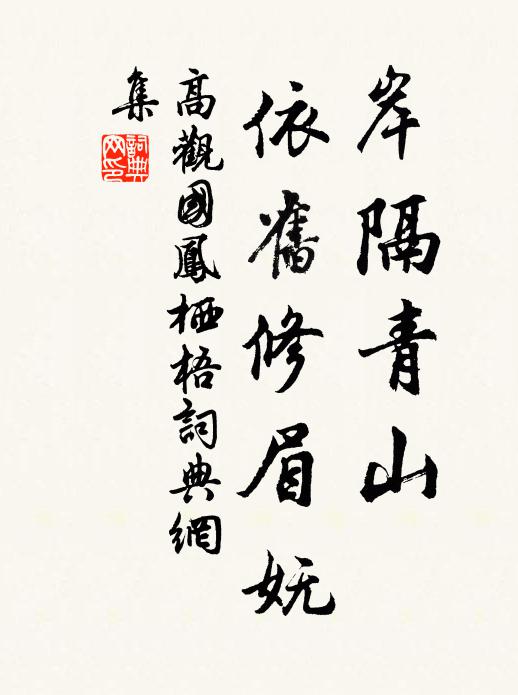 岸隔青山
依舊修眉嫵
高觀國鳳栖梧詞典網
集
詞典网印